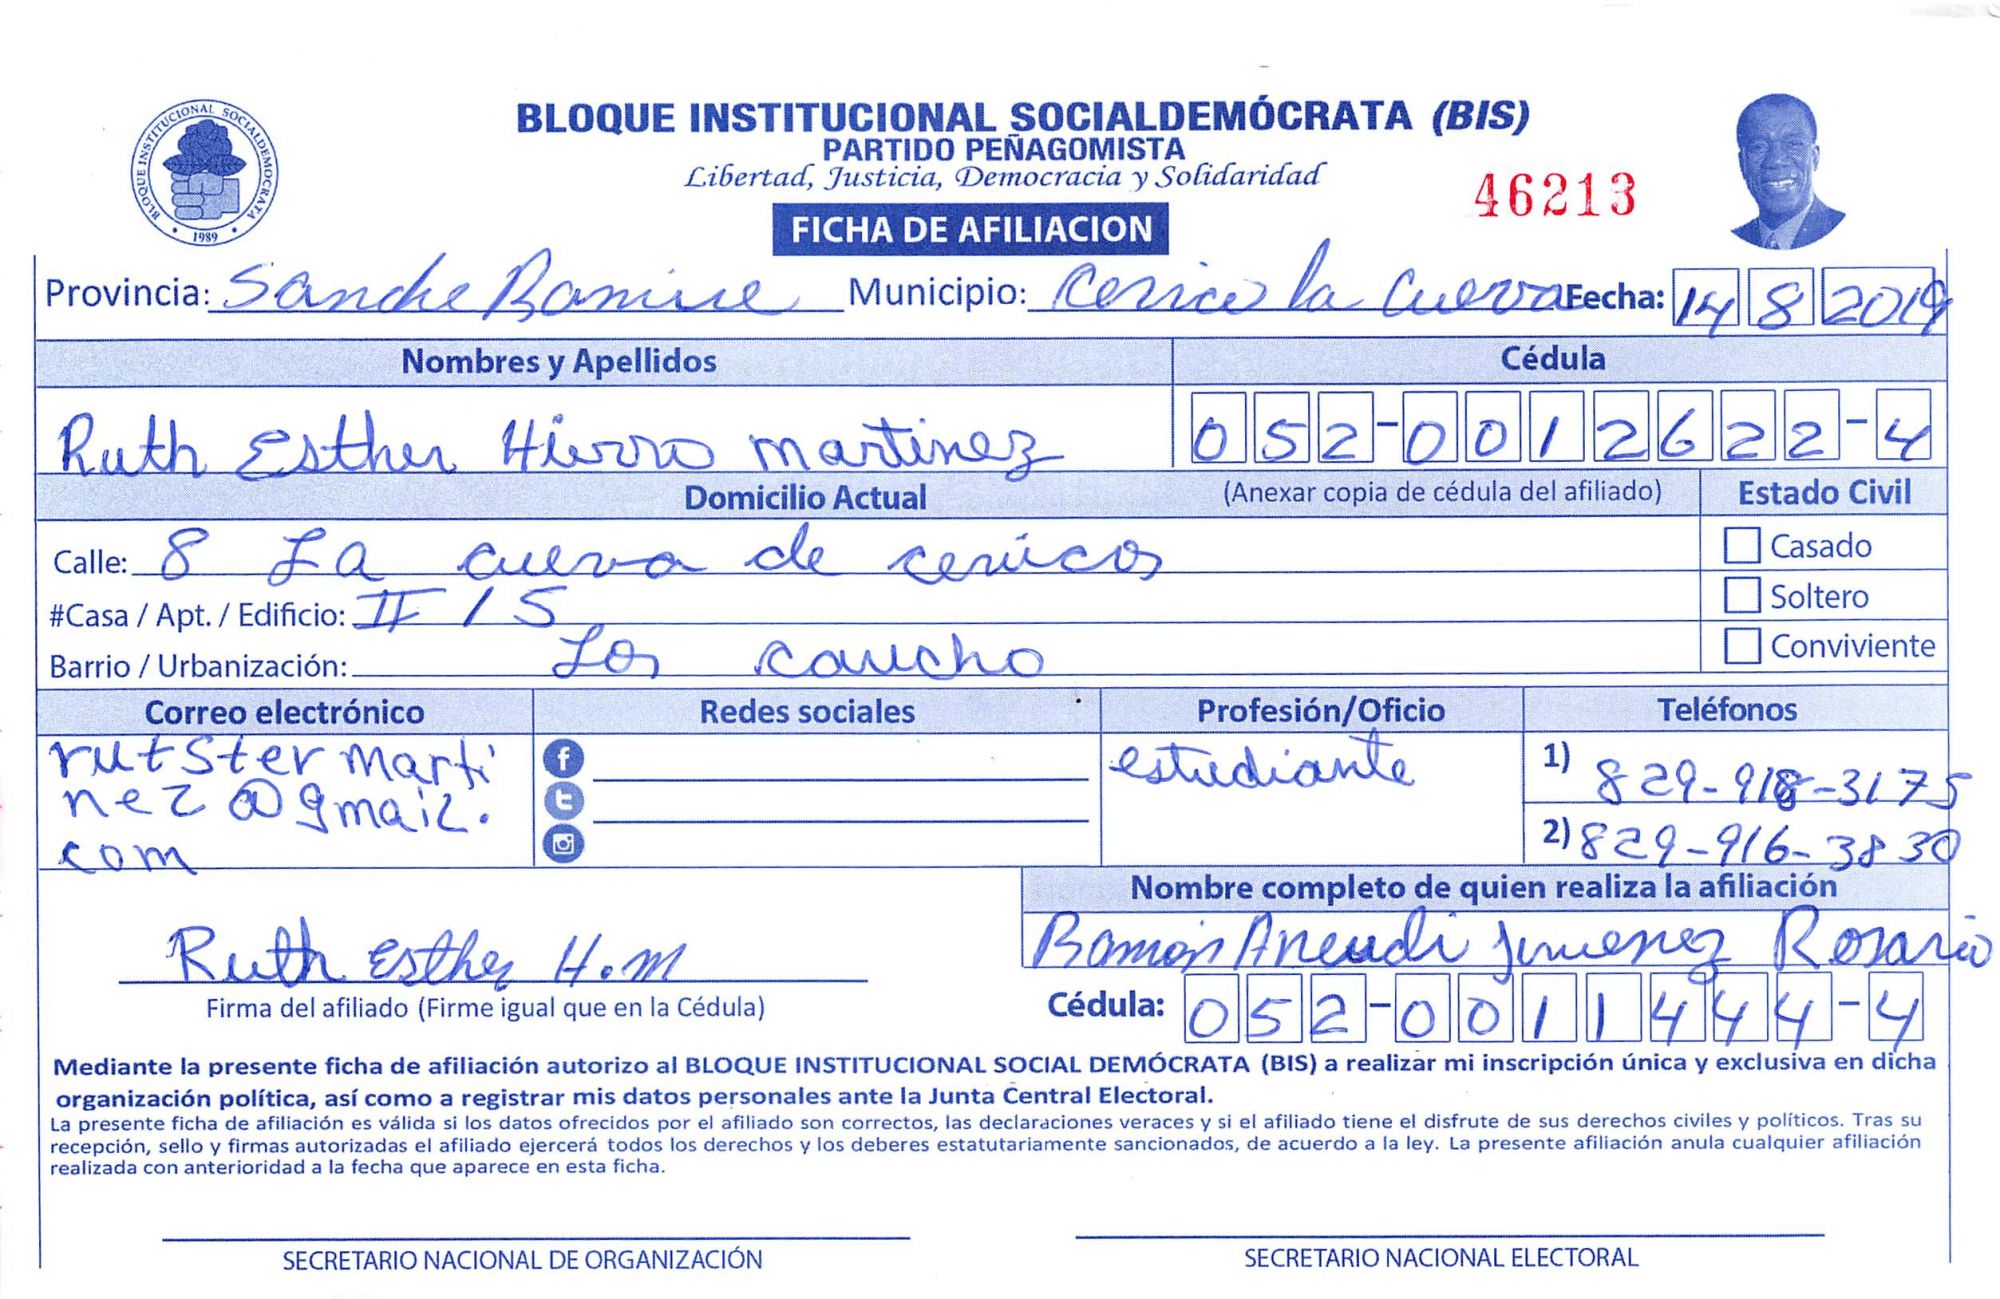 BLOQUE INSTITUCIONAL SOCIALDEMOCRATA
1989
BLOQUE INSTITUCIONAL SOCIALDEMÓCRATA (BIS)
PARTIDO PEÑAGOMISTA
Libertad, Justicia, Democracia y Solidaridad
46213
FICHA DE AFILIACION
Provincia: Sanche Ramire Municipio: Cerico la Cueva Fecha: 14 8 2019
Nombres y Apellidos Cédula
Ruth Esther Hierro martinez 052-0012622-4
Domicilio Actual (Anexar copia de cédula del afiliado) Estado Civil
Calle: 8 La cueva de cevicos Casado
#Casa / Apt. / Edificio: II / 5 Soltero
Barrio / Urbanización: Los caucho Conviviente
Correo electrónico Redes sociales Profesión/Oficio Teléfonos
rutster marti estudiante 1) 829-918-3175
nez@gmail.
com 2) 829-916-3830
Nombre completo de quien realiza la afiliación
Ruth Esther H.M Ramón Aneudi Jimenez Rosario
Firma del afiliado (Firme igual que en la Cédula) Cédula: 052-0011444-4
Mediante la presente ficha de afiliación autorizo al BLOQUE INSTITUCIONAL SOCIAL DEMÓCRATA (BIS) a realizar mi inscripción única y exclusiva en dicha
organización política, así como a registrar mis datos personales ante la Junta Central Electoral.
La presente ficha de afiliación es válida si los datos ofrecidos por el afiliado son correctos, las declaraciones veraces y si el afiliado tiene el disfrute de sus derechos civiles y políticos. Tras su
recepción, sello y firmas autorizadas el afiliado ejercerá todos los derechos y los deberes estatutariamente sancionados, de acuerdo a la ley. La presente afiliación anula cualquier afiliación
realizada con anterioridad a la fecha que aparece en esta ficha.
SECRETARIO NACIONAL DE ORGANIZACIÓN SECRETARIO NACIONAL ELECTORAL